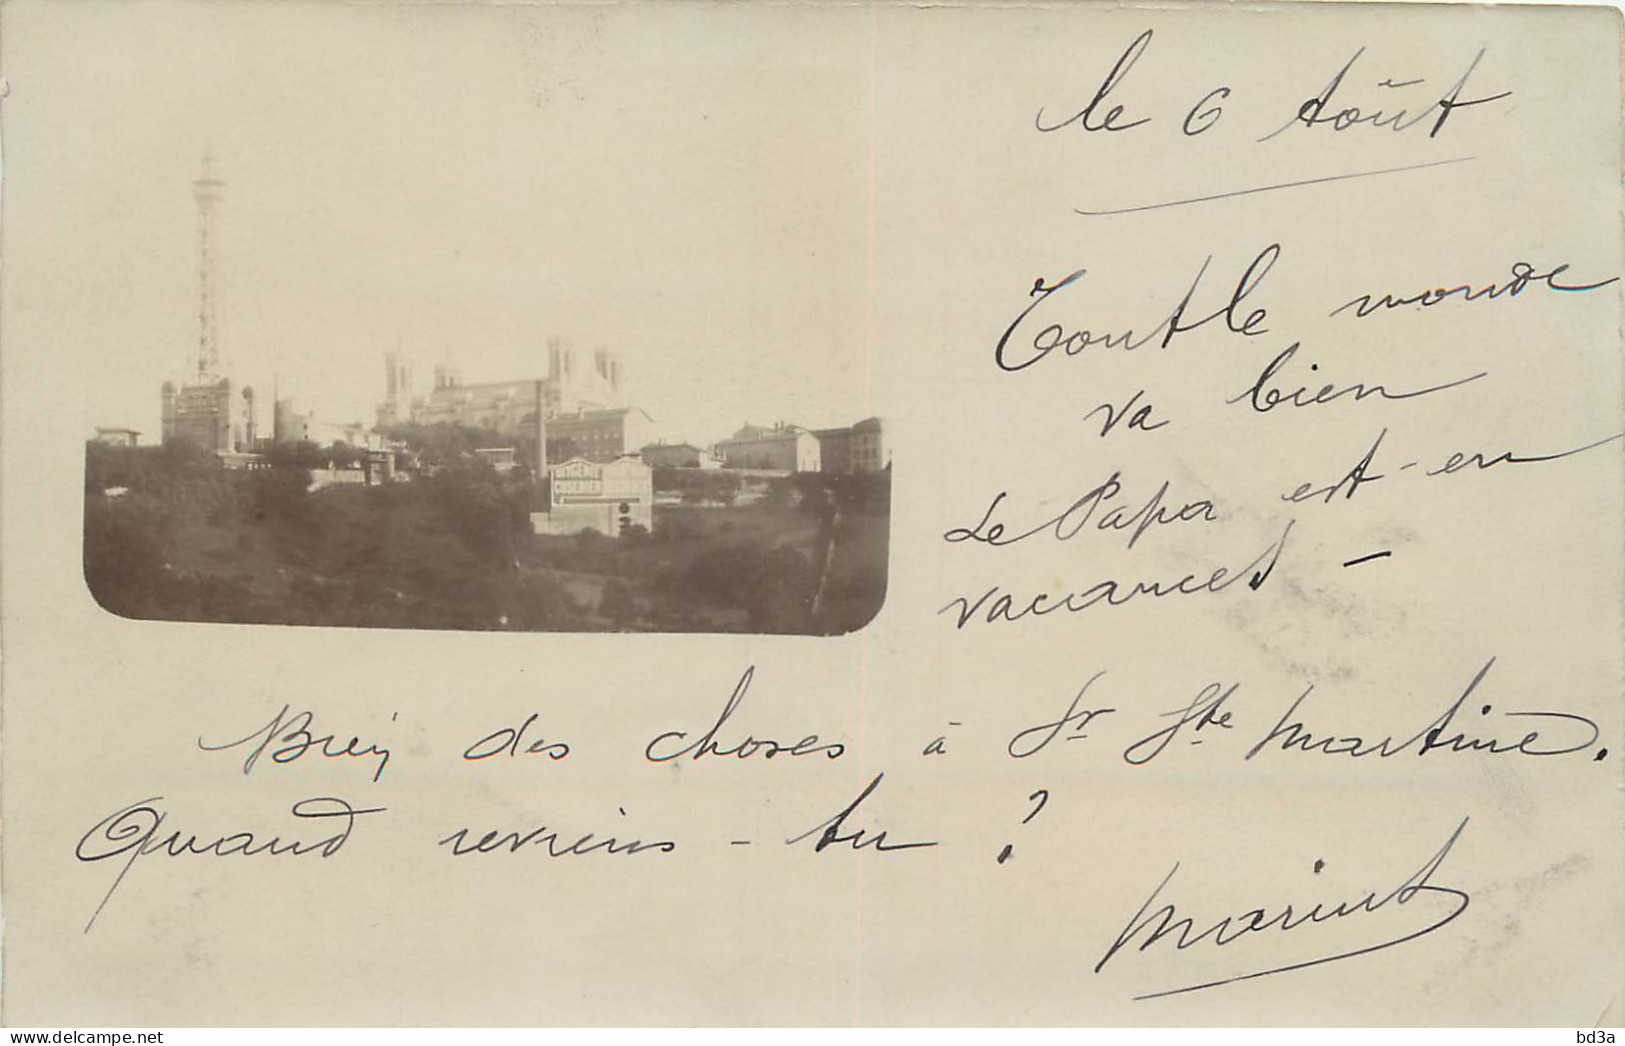 le 6 Août
Tout le monde
va bien
Le Papa est en
vacances –
Bien des choses à Sr Ste Martine.
Quand reviens-tu ?
Marius
delcampe.net
bd3a